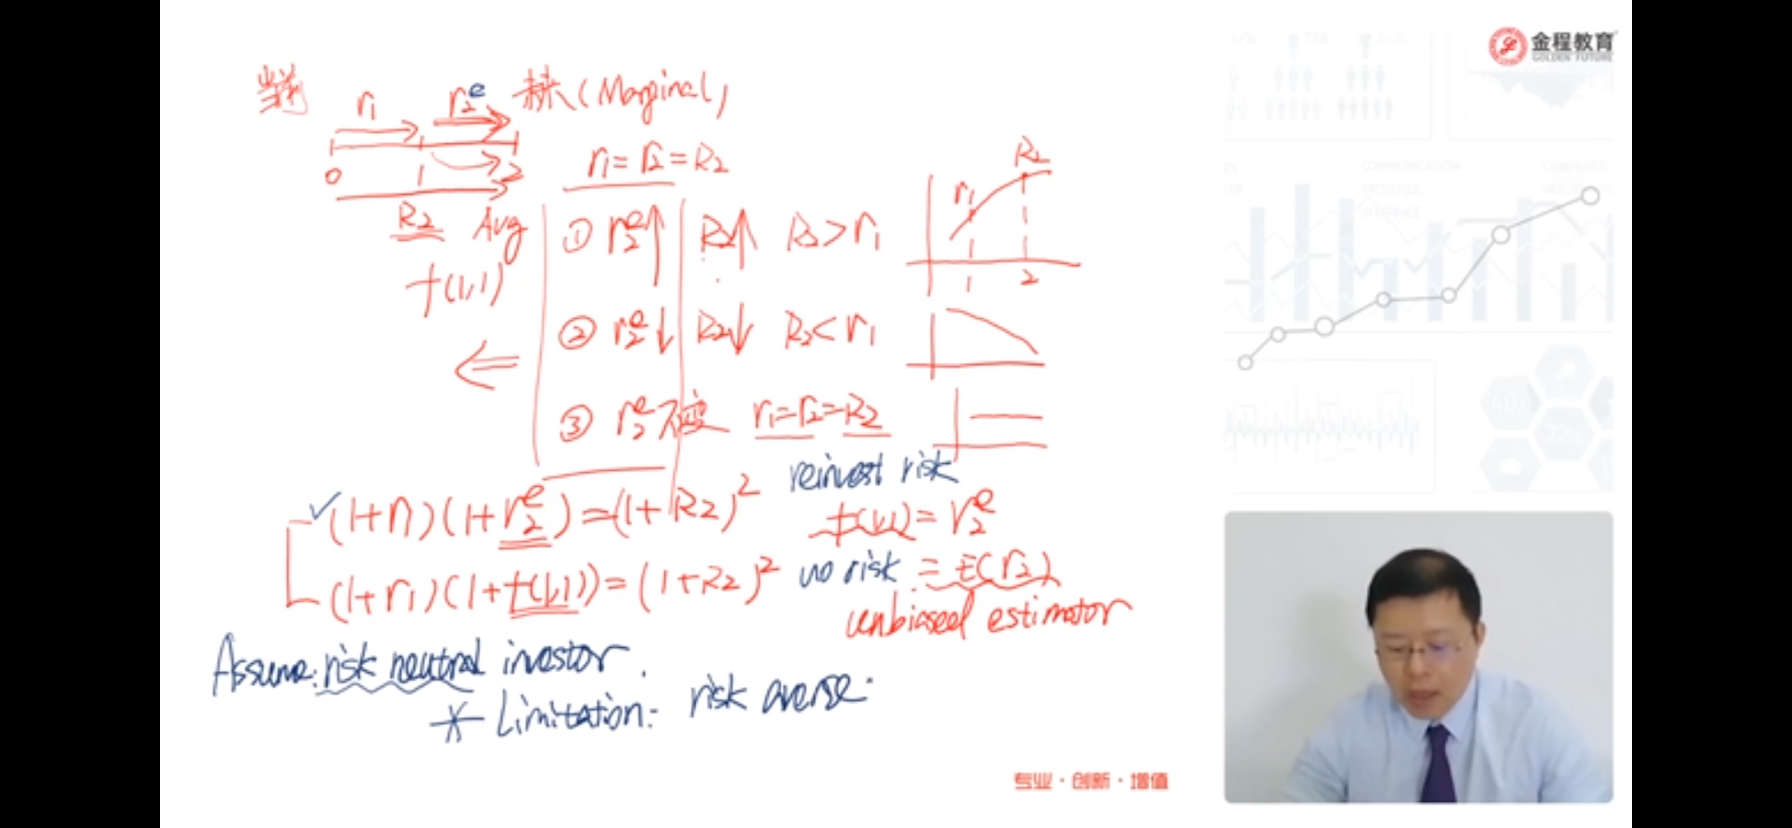 金程教育
GOLDEN FUTURE
r₁ r₂ᵉ 未来(Marginal)
0 1 2
R₂ Avg
f(1,1)
r₁=r₂=R₂
① r₂ᵉ↑ R₂↑ R₂>r₁
② r₂ᵉ↓ R₂↓ R₂<r₁
③ r₂ᵉ不变 r₁=r₂=R₂
r₁ R₂
1 2
reinvest risk
✓(1+r₁)(1+r₂ᵉ)=(1+R₂)² f(1,1)=r₂ᵉ
(1+r₁)(1+f(1,1))=(1+R₂)² no risk =E(r₂)
unbiased estimator
Assume: risk neutral investor.
* Limitation: risk averse.
专业·创新·增值